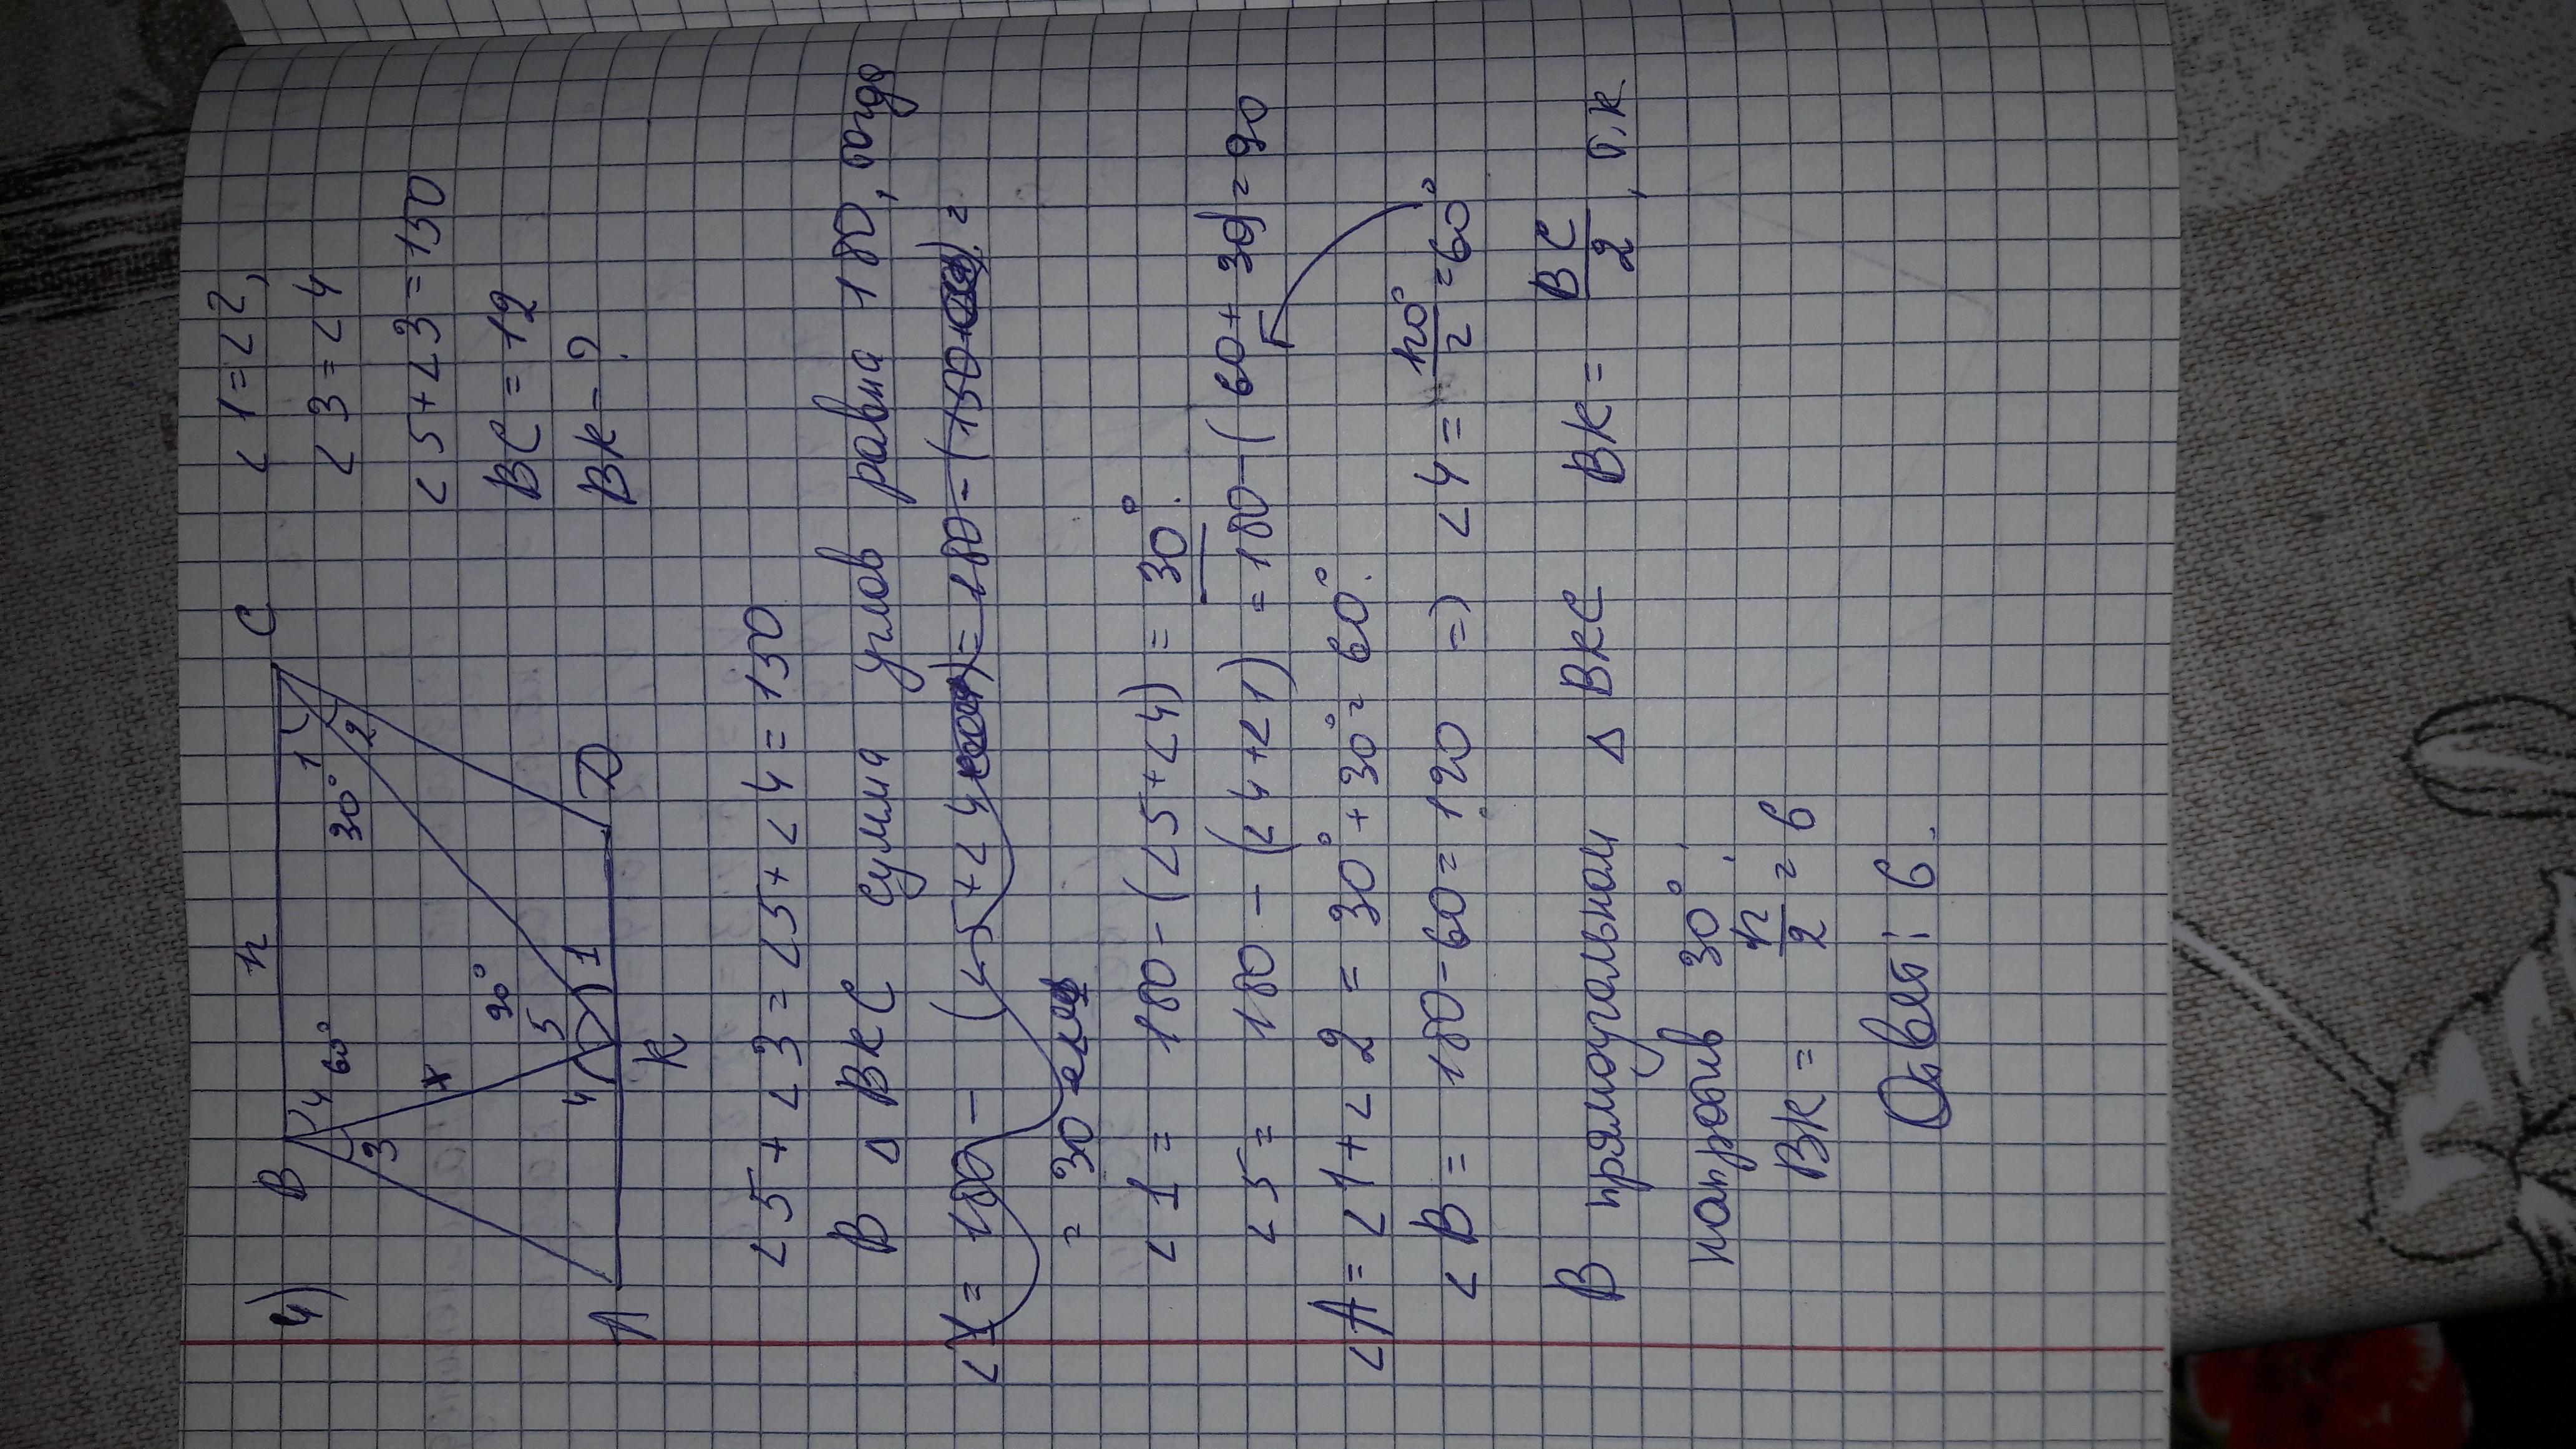 4)
B
12
C
4 60°
30° 1
2
3
x
90°
4
5
1
A
K
D
∠1=∠2,
∠3=∠4
∠5+∠3=150
BC=12
BK-?
∠5+∠3=∠5+∠4=150
В Δ BKC сумма углов равна 180, тогда
∠1=180-(∠5+∠4)=180-(150)=
=30
∠1= 180-(∠5+∠4)=30°.
∠5= 180-(∠4+∠1)=180-(60+30)=90
∠A=∠1+∠2=30°+30°=60°.
∠B= 180-60=120 => ∠4= 120°/2 =60°
В прямоугольном Δ BKC BK= BC/2, т.к.
напротив 30°.
BK= 12/2 = 6
Ответ: 6.